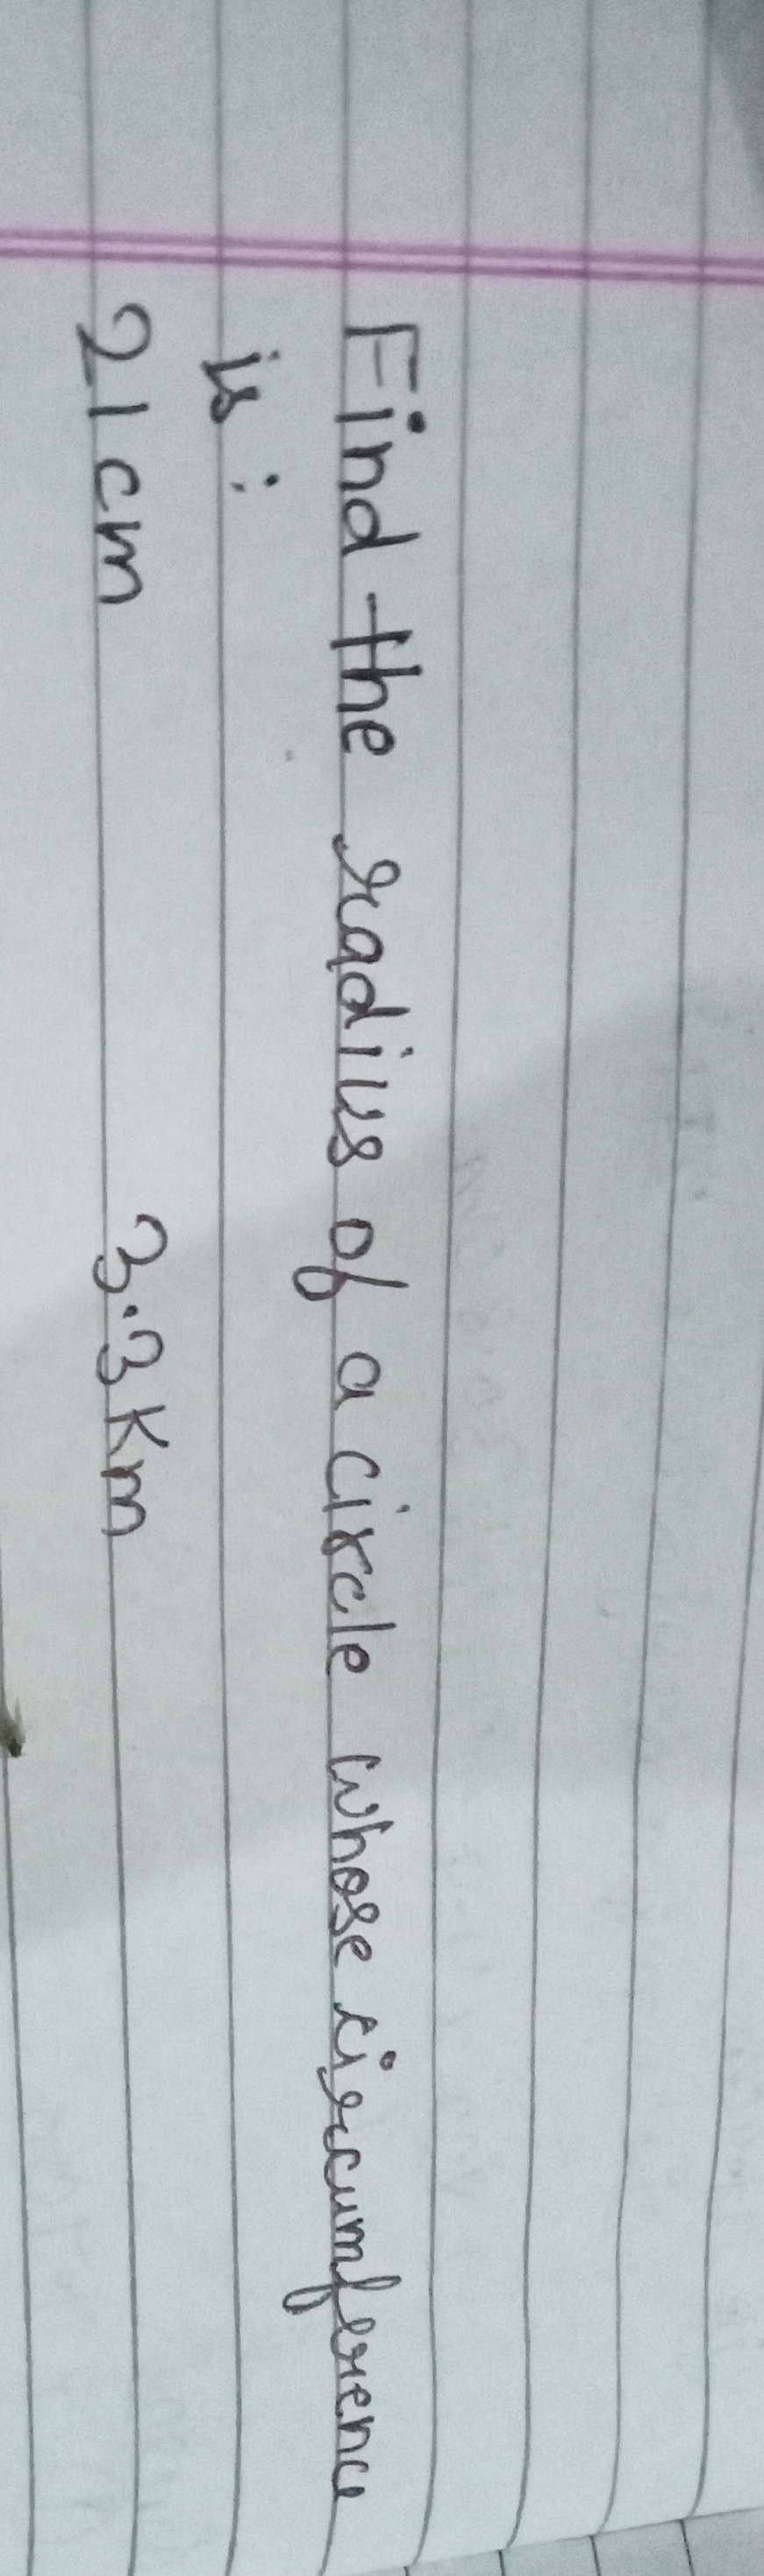 Find the radius of a circle whose circumference
is:
21cm 3.3Km